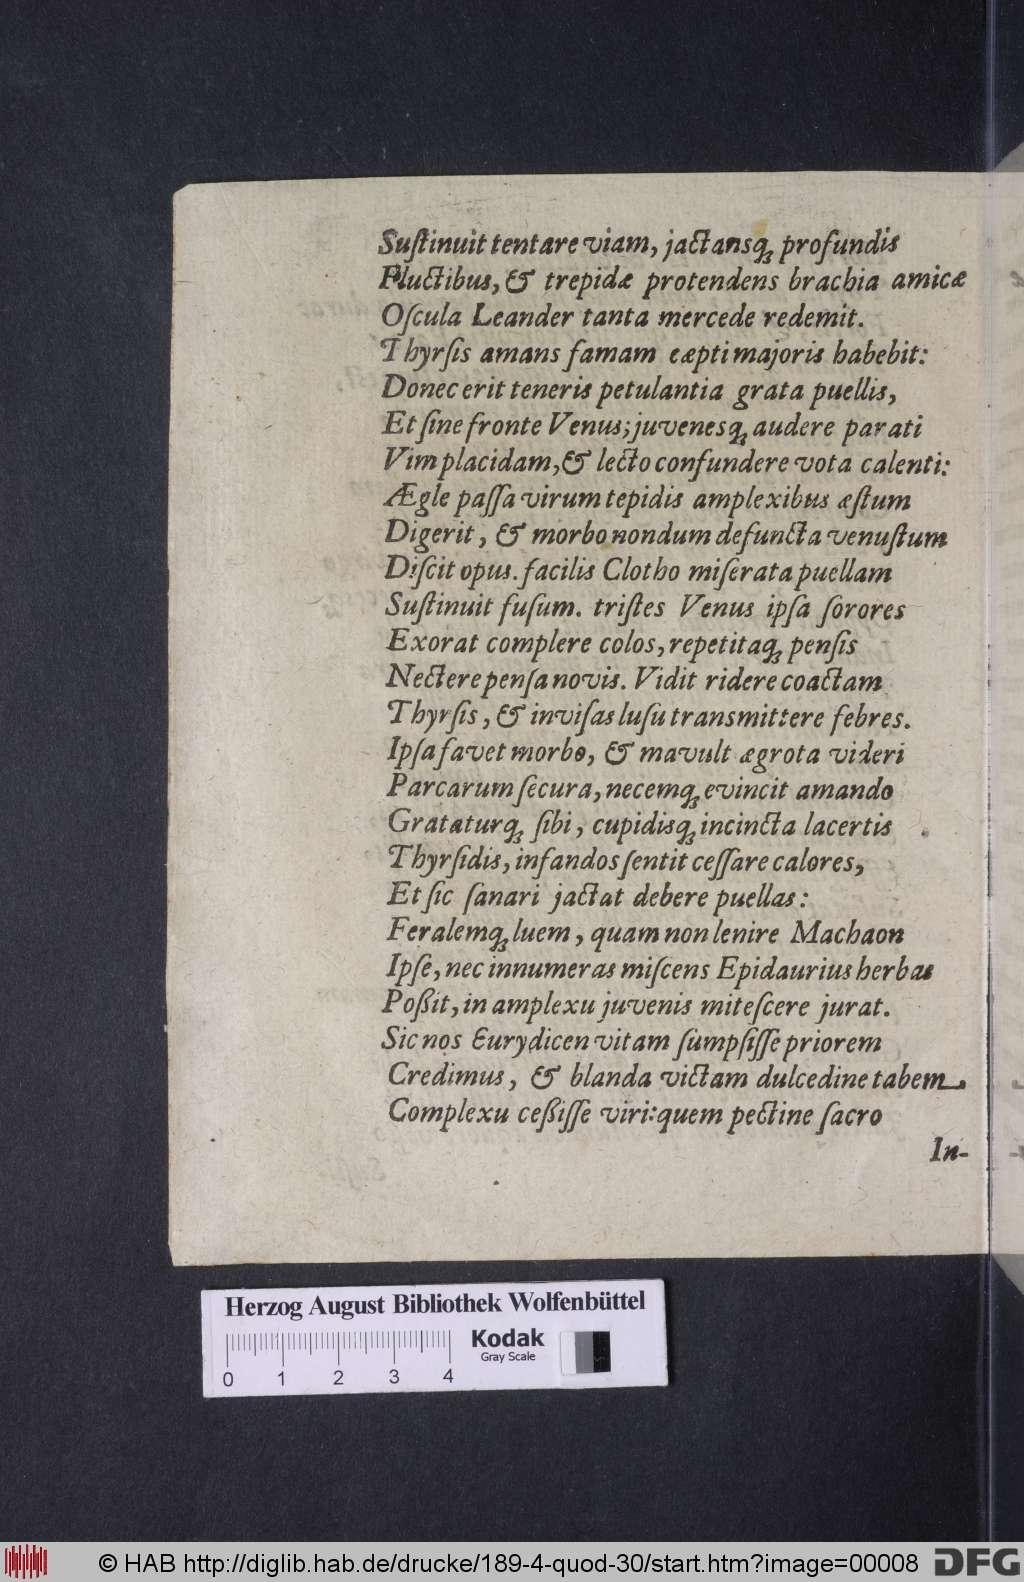 Suſtinuit tentare viam, jactansq́ꝫ profundis
Fluctibus, & trepidæ protendens brachia amicæ
Oſcula Leander tanta mercede redemit.
Thyrſis amans famam cæpti majoris habebit:
Donec erit teneris petulantia grata puellis,
Et ſine fronte Venus; juvenesq́ꝫ audere parati
Vim placidam, & lecto confundere vota calenti:
Ægle paſſa virum tepidis amplexibus æſtum
Digerit, & morbo nondum defuncta venuſtum
Diſcit opus. facilis Clotho miſerata puellam
Suſtinuit fuſum. triſtes Venus ipſa ſorores
Exorat complere colos, repetitaq́ꝫ penſis
Nectere penſa novis. Vidit ridere coactam
Thyrſis, & inviſas luſu transmittere febres.
Ipſa favet morbo, & mavult ægrota videri
Parcarum ſecura, necemq́ꝫ evincit amando
Grataturq́ꝫ ſibi, cupidisq́ꝫ incincta lacertis
Thyrſidis, infandos ſentit ceſſare calores,
Et ſic ſanari jactat debere puellas:
Feralemq́ꝫ luem, quam non lenire Machaon
Ipſe, nec innumeras miſcens Epidaurius herbas
Poßit, in amplexu juvenis miteſcere jurat.
Sic nos Eurydicen vitam ſumpſiſſe priorem
Credimus, & blanda victam dulcedine tabem
Complexu ceßiſſe viri: quem pectine ſacro
In-
Herzog August Bibliothek Wolfenbüttel
Kodak
Gray Scale
0 1 2 3 4
© HAB http://diglib.hab.de/drucke/189-4-quod-30/start.htm?image=00008
DFG